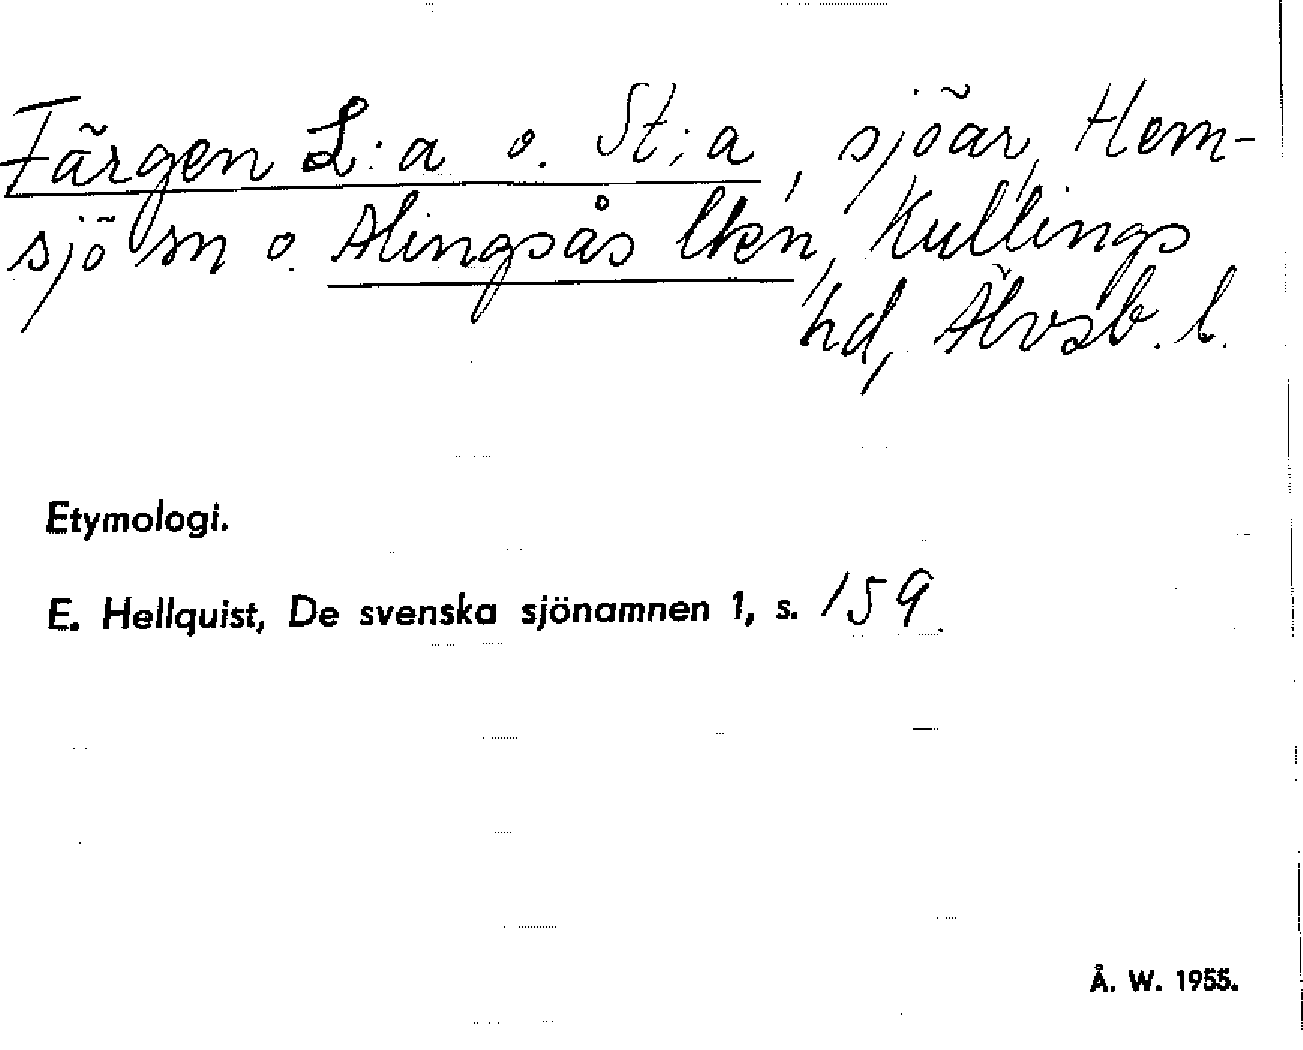 Färgen L:a o. St:a, sjöar, Hem-
sjö sn o. Alingsås lkn, Kullings
hd, Älvsb. l.
Etymologi.
E. Hellquist, De svenska sjönamnen 1, s. 159.
Å. W. 1955.